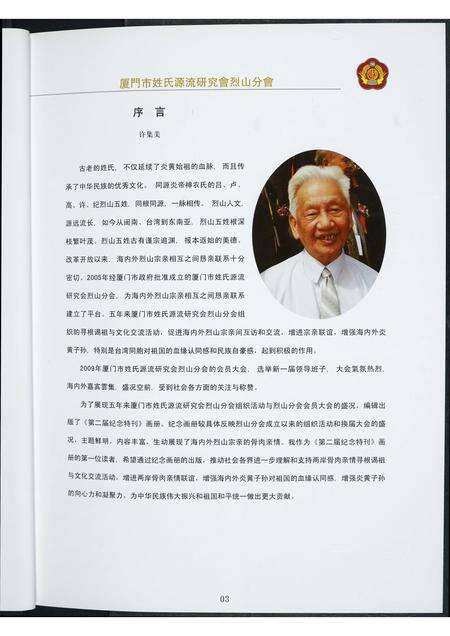 厦門市姓氏源流研究會烈山分會
序 言
许集美
古老的姓氏, 不仅延续了炎黄始祖的血脉, 而且传
承了中华民族的优秀文化。 同源炎帝神农氏的吕、卢、
高、许、纪烈山五姓, 同根同源, 一脉相传, 烈山人文,
源远流长, 如今从闽南、台湾到东南亚, 烈山五姓根深
枝繁叶茂。烈山五姓古有谨宗追渊, 报本返始的美德,
改革开放以来, 海内外烈山宗亲相互之间恳亲联系十分
密切。2005年经厦门市政府批准成立的厦门市姓氏源流
研究会烈山分会, 为海内外烈山宗亲相互之间恳亲联系
建立了平台。五年来厦门市姓氏源流研究会烈山分会组
织的寻根谒祖与文化交流活动, 促进海内外烈山宗亲间互访和交流, 增进宗亲联谊, 增强海内外炎
黄子孙, 特别是台湾同胞对祖国的血缘认同感和民族自豪感, 起到积极的作用。
2009年厦门市姓氏源流研究会烈山分会的会员大会, 选举新一届领导班子, 大会氣氛热烈,
海内外嘉宾雲集, 盛况空前, 受到社会各方面的关注与称赞。
为了展现五年来厦门市姓氏源流研究会烈山分会组织活动与烈山分会会员大会的盛况, 编辑出
版了《第二届纪念特刊》画册。纪念画册较具体反映烈山分会成立以来的组织活动和换届大会的盛
况, 主题鲜明, 内容丰富, 生动展现了海内外烈山宗亲的骨肉亲情。我作为《第二届纪念特刊》画
册的第一位读者, 希望通过纪念画册的出版, 推动社会各界进一步理解和支持两岸骨肉亲情寻根谒祖
与文化交流活动, 增进两岸骨肉亲联谊, 增强海内外炎黄子孙对祖国的血缘认同感, 增强炎黄子孙
的向心力和凝聚力, 为中华民族伟大振兴和祖国和平统一做出更大贡献。
03